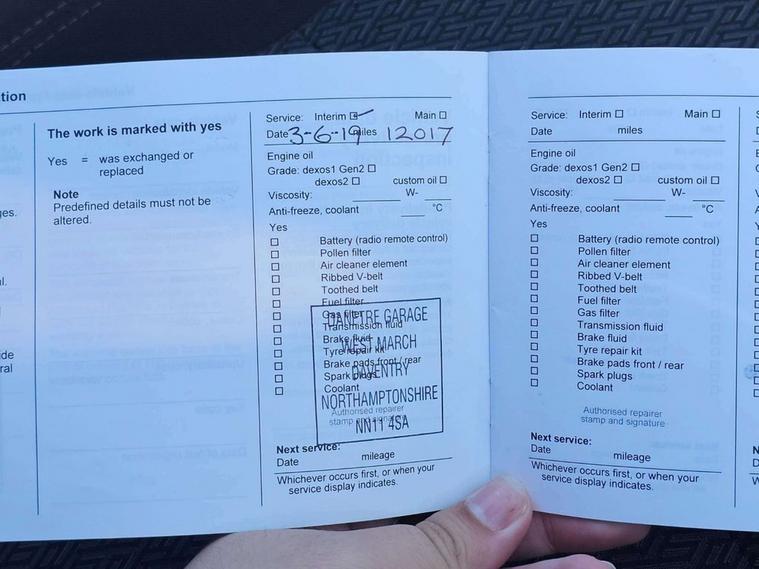 tion
The work is marked with yes
Yes = was exchanged or
replaced
Note
Predefined details must not be
altered.
ges.
al.
ide
ral
Service: Interim ☑ Main ☐
Date 3-6-19 miles 12017
Engine oil
Grade: dexos1 Gen2 ☐
dexos2 ☐ custom oil ☐
Viscosity: ____ W- ____
Anti-freeze, coolant ____ °C
Yes
☐ Battery (radio remote control)
☐ Pollen filter
☐ Air cleaner element
☐ Ribbed V-belt
☐ Toothed belt
☐ Fuel filter
☐ Gas filter
☐ Transmission fluid
☐ Brake fluid
☐ Tyre repair kit
☐ Brake pads front / rear
☐ Spark plugs
☐ Coolant
DANETRE GARAGE
WEST MARCH
DAVENTRY
NORTHAMPTONSHIRE
NN11 4SA
Authorised repairer
stamp and signature
Next service:
Date mileage
Whichever occurs first, or when your
service display indicates.
Service: Interim ☐ Main ☐
Date miles
Engine oil
Grade: dexos1 Gen2 ☐
dexos2 ☐ custom oil ☐
Viscosity: ____ W- ____
Anti-freeze, coolant ____ °C
Yes
☐ Battery (radio remote control)
☐ Pollen filter
☐ Air cleaner element
☐ Ribbed V-belt
☐ Toothed belt
☐ Fuel filter
☐ Gas filter
☐ Transmission fluid
☐ Brake fluid
☐ Tyre repair kit
☐ Brake pads front / rear
☐ Spark plugs
☐ Coolant
Authorised repairer
stamp and signature
Next service:
Date mileage
Whichever occurs first, or when your
service display indicates.